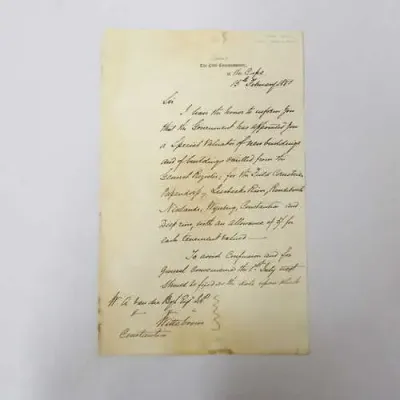 The Civil Commissioner,
The Cape
15th February 188
Sir
I have the honor to inform you
that the Government has appointed you
a Special Valuator of new buildings
and of buildings omitted from the
General Register; for the Field Cornetcies
Papendorp, Liesbeek River, Rondebosch
Newlands, Wynberg, Constantia and
Diep river, with an allowance of 2/ for
each Tenement valued.
To avoid Confusion and for
general convenience the 1st July next
should be fixed as the date upon which
W. A. van der Byl Esq
Witteboomen
Constantia